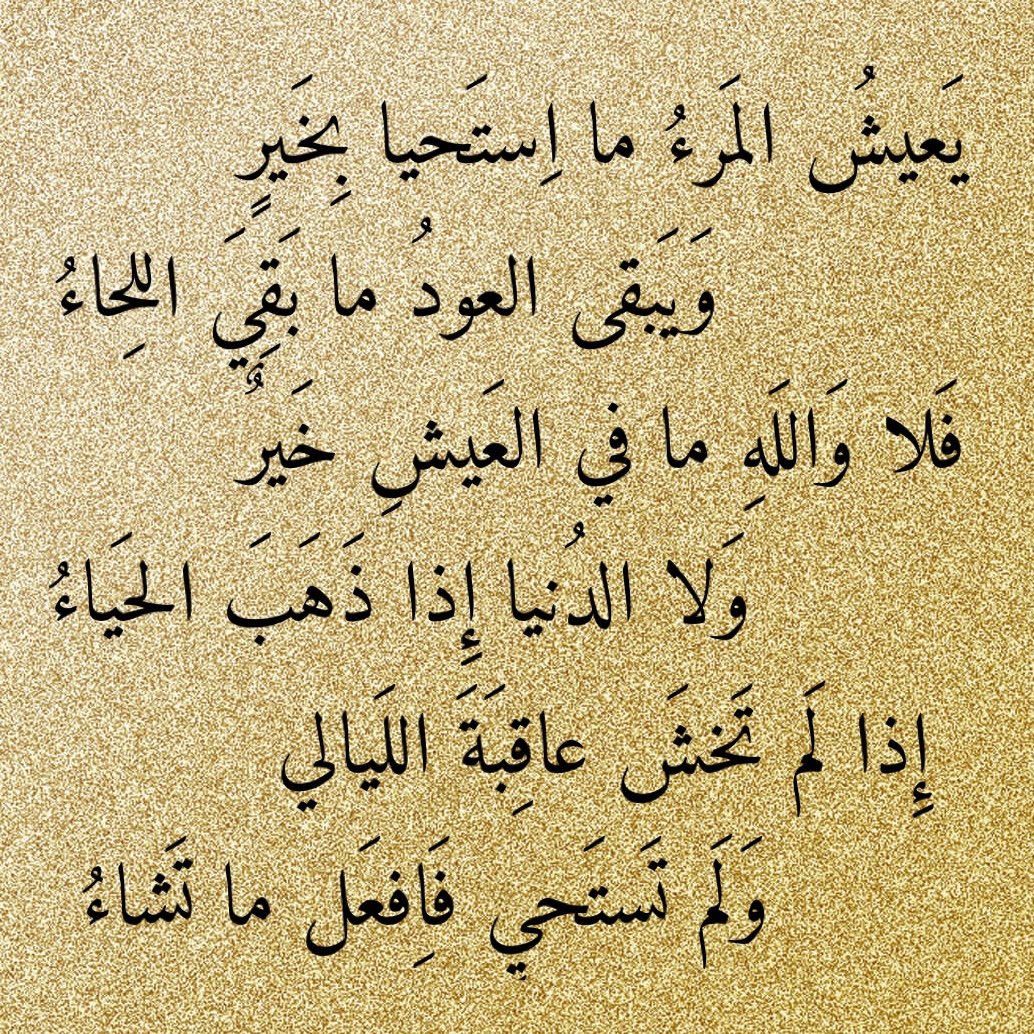 يَعيشُ المَرءُ ما اِستَحيا بِخَيرٍ
وَيَبقى العودُ ما بَقِيَ اللِحاءُ
فَلا وَاللَهِ ما في العَيشِ خَيرٌ
وَلا الدُنيا إِذا ذَهَبَ الحَياءُ
إِذا لَم تَخشَ عاقِبَةَ اللَيالي
وَلَم تَستَحيِ فَاِفعَل ما تَشاءُ